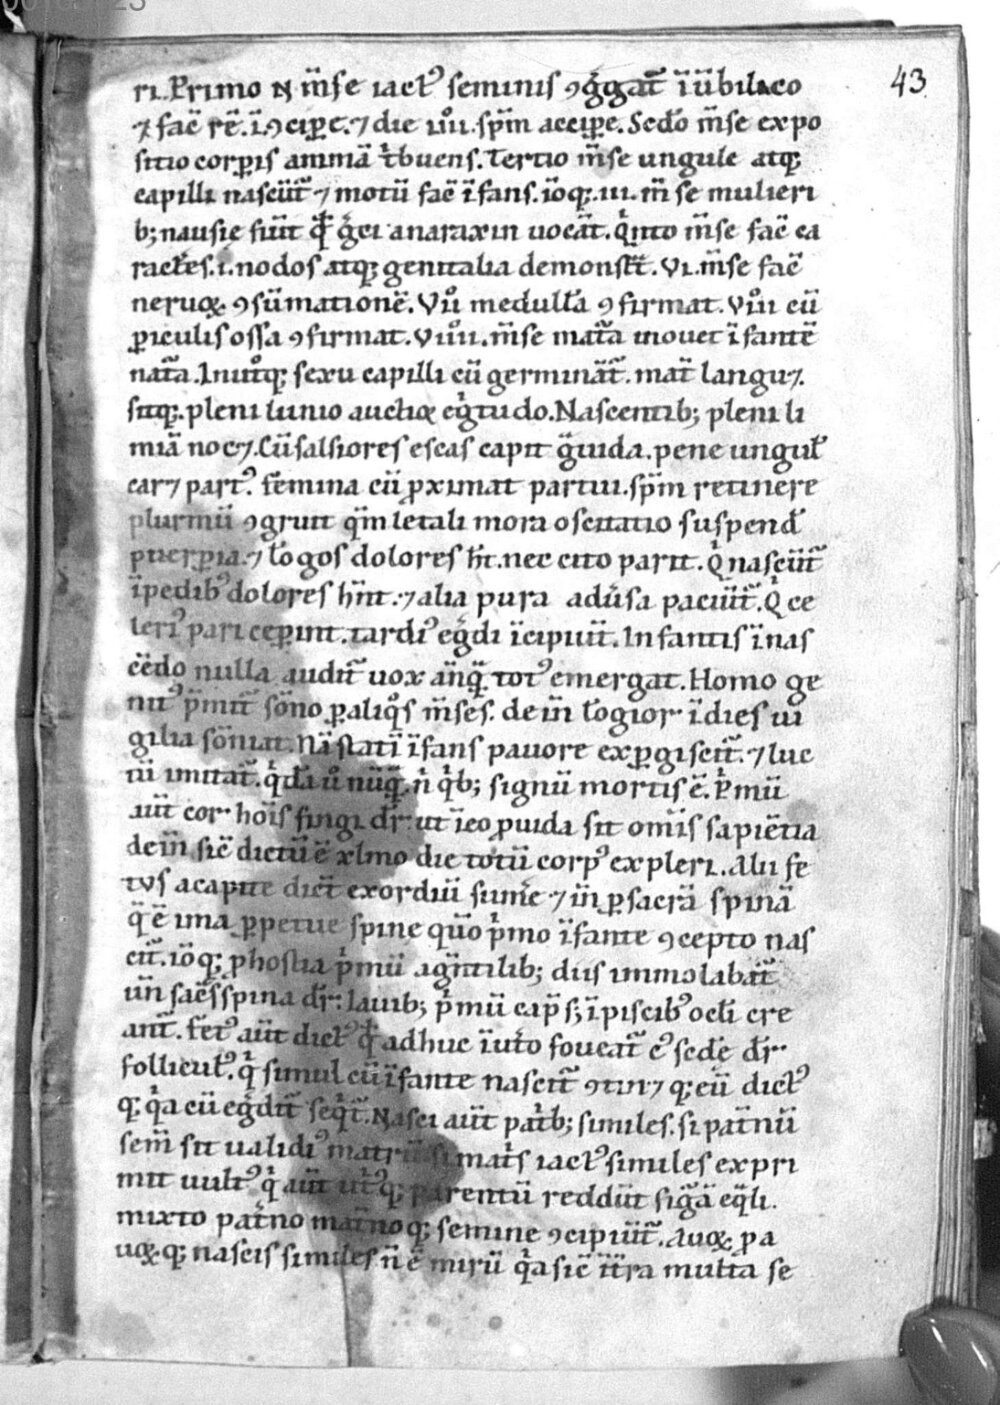 43
ri. Primo n̄ m̄se iact᷒ seminis ꝯg̃gat᷑ ī ūbilico
⁊ fac̄ rē. i. ꝯcip̲e. ⁊ die iiii. sp̄m accip̲e. Sc̄do m̄se expo
sitio corp̲is animā t͛buens. Tertio m̄se ungule atq;
capilli nascūt᷑ ⁊ motū fac̄ īfans. iōq;. iii. m̄se mulieri
b; nausie fiūt qd̄ g͛ci anaraxin uocāt. Qͥnto m̄se fac̄ ca
ract͛es. i. nodos atq; genitalia demonst͛t. vi. m̄se fac̄
neruoꝝ ꝯsūmationē. vii° medullā ꝯfirmat. viii° cū
p̲iculis ossa ꝯfirmat. viiii°. m̄se mat᷑a mouet īfantē
nat᷑a. In ut͛oq; sexu capilli cū germināt᷑. mat᷑ langu⁊.
sitq;. pleni lunio auctioꝝ eg͛tudo. Nascentib; pleni li
miā noc⁊. Cū salsiores escas capit g͛uida. pene ungul̄
car⁊ part᷒. femina cū ꝓximat partui. sp̄m retinere
plurimū ꝯgruit qm̄ letali mora oscitatio suspend̄
puerp̲ia. ⁊ lōgos dolores ht̄. nec cito parit. Qͥ nascūt᷑
ī pedib᷒ dolores hn̄t. ⁊ alia pura adūsa paciūt᷑. Qͥ ce
leri᷒ pari cep̲int. tardi᷒ eg͛di īcipiūt. Infantis ī nas
cēdo nulla audit᷑ uox ān̄q̄ tot᷒ emergat. Homo ge
nit᷒ p̄mit᷑ sōno p̲ aliqͦs m̄ses. dein̄ lōgior ī dies ui
gilia sōniat. Nā statī īfans pauore exp̲giscit᷑. ⁊ luc
tū imitat᷑. qͥdā u͛o nūq̄. n͛ qͥb; signū mortis ē. P͛mū
aūt cor hoīs fingi dr̄: ut ī eo ꝓuida sit om̄is sapiētia
dein̄ sic̄ dictū ē xlmo die totū corp᷒ expleri. Alii fe
tvs a capite dict̄ exordiū sume̅ ⁊ in̄ p̲ sacrā spinā
q̄ ē ima p̲petue spine quō p͛mo īfante ꝯcepto nas
cit᷑. iōq; ꝓ hostia p͛mū a gn̄tilib; diis immolabat᷑
un̄ sac̄s spina dr̄: lauib; p͛mū cap̄s; ī piscib᷒ ocl̄i cre
ant᷑. fet᷒ aūt dict᷒ qd̄ adhuc ī ut͛o foueat᷑ c᷒ sedē dr̄
follicul᷒. qͥ simul cū īfante nascit᷑ ꝯtin⁊ q; eū dict᷒
q; qͥa cū eg͛dit᷑ seqͥt᷑. Nasci aūt pat͛b; similes. si pat͛nū
sem̄ sit ualidi᷒ matrū si mat͛s iact᷒ similes expri
mit uult᷒ qͥ aūt ut͛q; parentū reddūt fig͛ā eq̄li.
mixto pat͛no mat͛noq; semine ꝯcipiūt᷑. Auoꝝ p̲a
uoꝝ q; nascis similes n̄ ē mirū qͥa sic̄ īt͛ra multa se